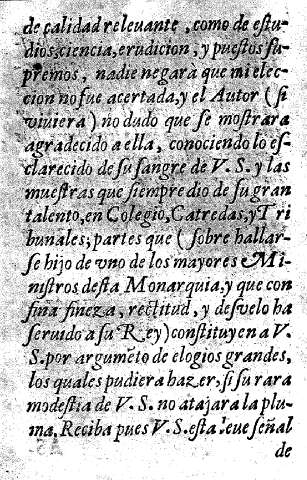 de calidad releuante, como de estu-
dios, ciencia, erudicion, y puestos su-
premos, nadie negarà que mi elec-
cion no fue acertada, y el Autor (si
viuiera) no dudo que se mostrara
agradecido a ella, conociendo lo es-
clarecido de su sangre de V. S. y las
muestras que siempre dio de su gran
talento, en Colegio, Catredas, y Tri
bunales; partes que (sobre hallar-
se hijo de vno de los mayores Mi-
nistros desta Monarquia, y que con
fina fineza, rectitud, y desvelo ha
seruido a su Rey) constituyen a V.
S. por argumẽto de elogios grandes,
los quales pudiera hazer, si su rara
modestia de V. S. no atajara la plu-
ma. Reciba pues V. S. esta leue señal
de